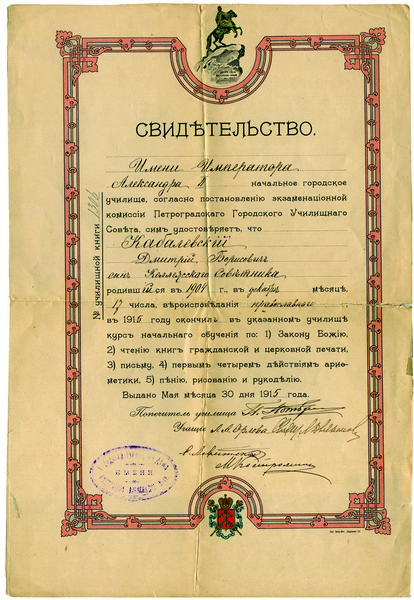 СВИДѢТЕЛЬСТВО.
Имени Императора
Александра II начальное городское
училище, согласно постановленію экзаменаціонной
комиссіи Петроградскаго Городского Училищнаго
Совѣта, симъ удостовѣряетъ, что
Кабалевскій
Дмитрій Борисовичъ
сынъ Коллежскаго Совѣтника
родившійся въ 1904 г. въ декабрѣ мѣсяцѣ,
17 числа, вѣроисповѣданія православнаго
въ 1915 году окончилъ въ указанномъ училищѣ
курсъ начальнаго обученія по: 1) Закону Божію,
2) чтенію книгъ гражданской и церковной печати,
3) письму, 4) первымъ четыремъ дѣйствіямъ арие-
метики, 5) пѣнію, рисованію и рукодѣлію.
Выдано Мая мѣсяца 30 дня 1915 года.
Попечитель училища
Учащіе
№ училищной книги